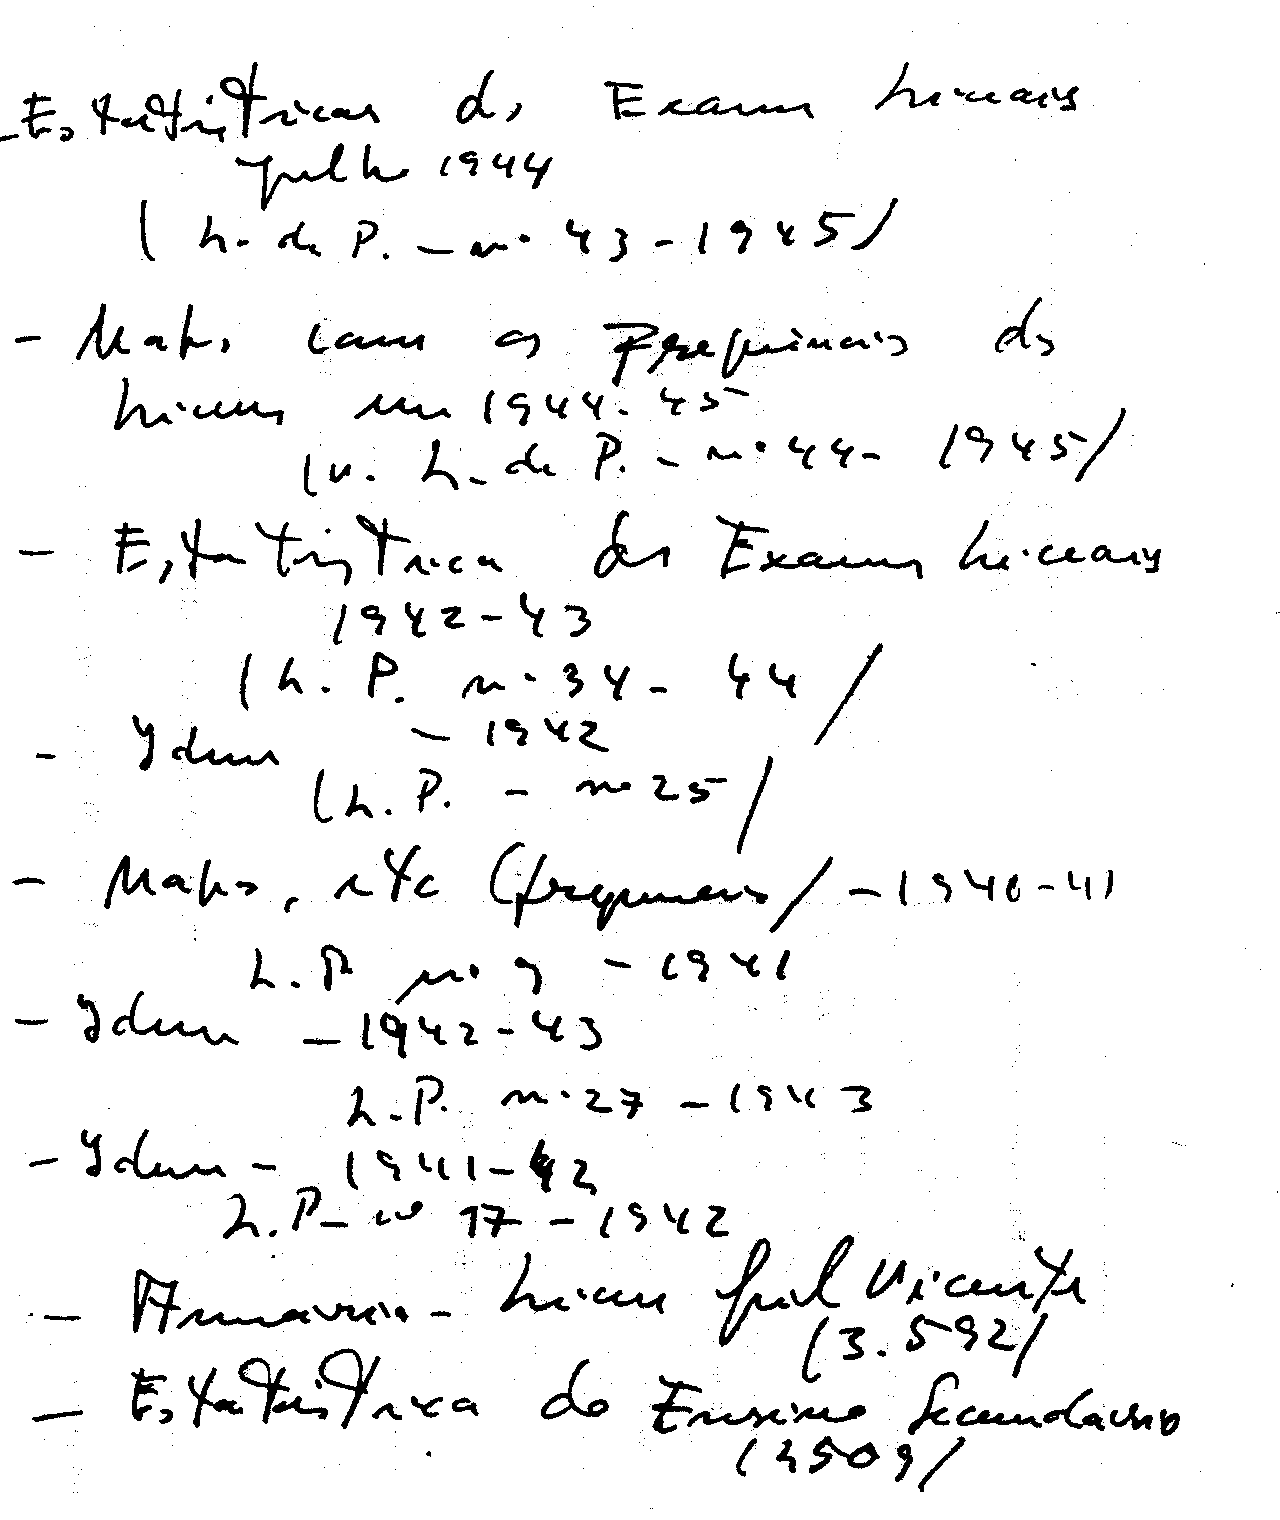 - Estatísticas ds Exames Liceais
Julho 1944
(L. de P. - nº 43 - 1945)
- Mapas com as frequências ds
Liceus em 1944-45
(v. L. de P. - nº 44 - 1945)
- Estatística dos Exames Liceais
1942-43
(L. P. nº 34 - 44)
- Idem - 1942
(L. P. - nº 25)
- Mapas, etc (frequências) - 1940-41
L. P. nº 9 - 1941
- Idem - 1942-43
L. P. nº 27 - 1943
- Idem - 1941-42
L. P. - nº 17 - 1942
- Anuário - Liceu Gil Vicente
(3.592)
- Estatística do Ensino Secundário
(3509)